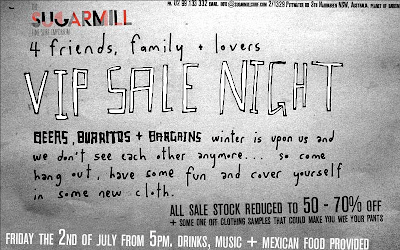 THE
SUGARMILL
PH. 02 99 133 332 EMAIL. INFO@SUGARMILLSURF.COM
4 friends, family + lovers
VIP SALE NIGHT
BEERS, BURRITOS + BARGAINS winter is upon us and
we don't see each other anymore... so come
hang out, have some fun and cover yourself
in some new cloth.
ALL SALE STOCK REDUCED TO 50 - 70% OFF
+ SOME ONE OFF CLOTHING SAMPLES THAT COULD MAKE YOU WEE YOUR PANTS
FRIDAY THE 2ND OF JULY FROM 5PM, DRINKS, MUSIC + MEXICAN FOOD PROVIDED